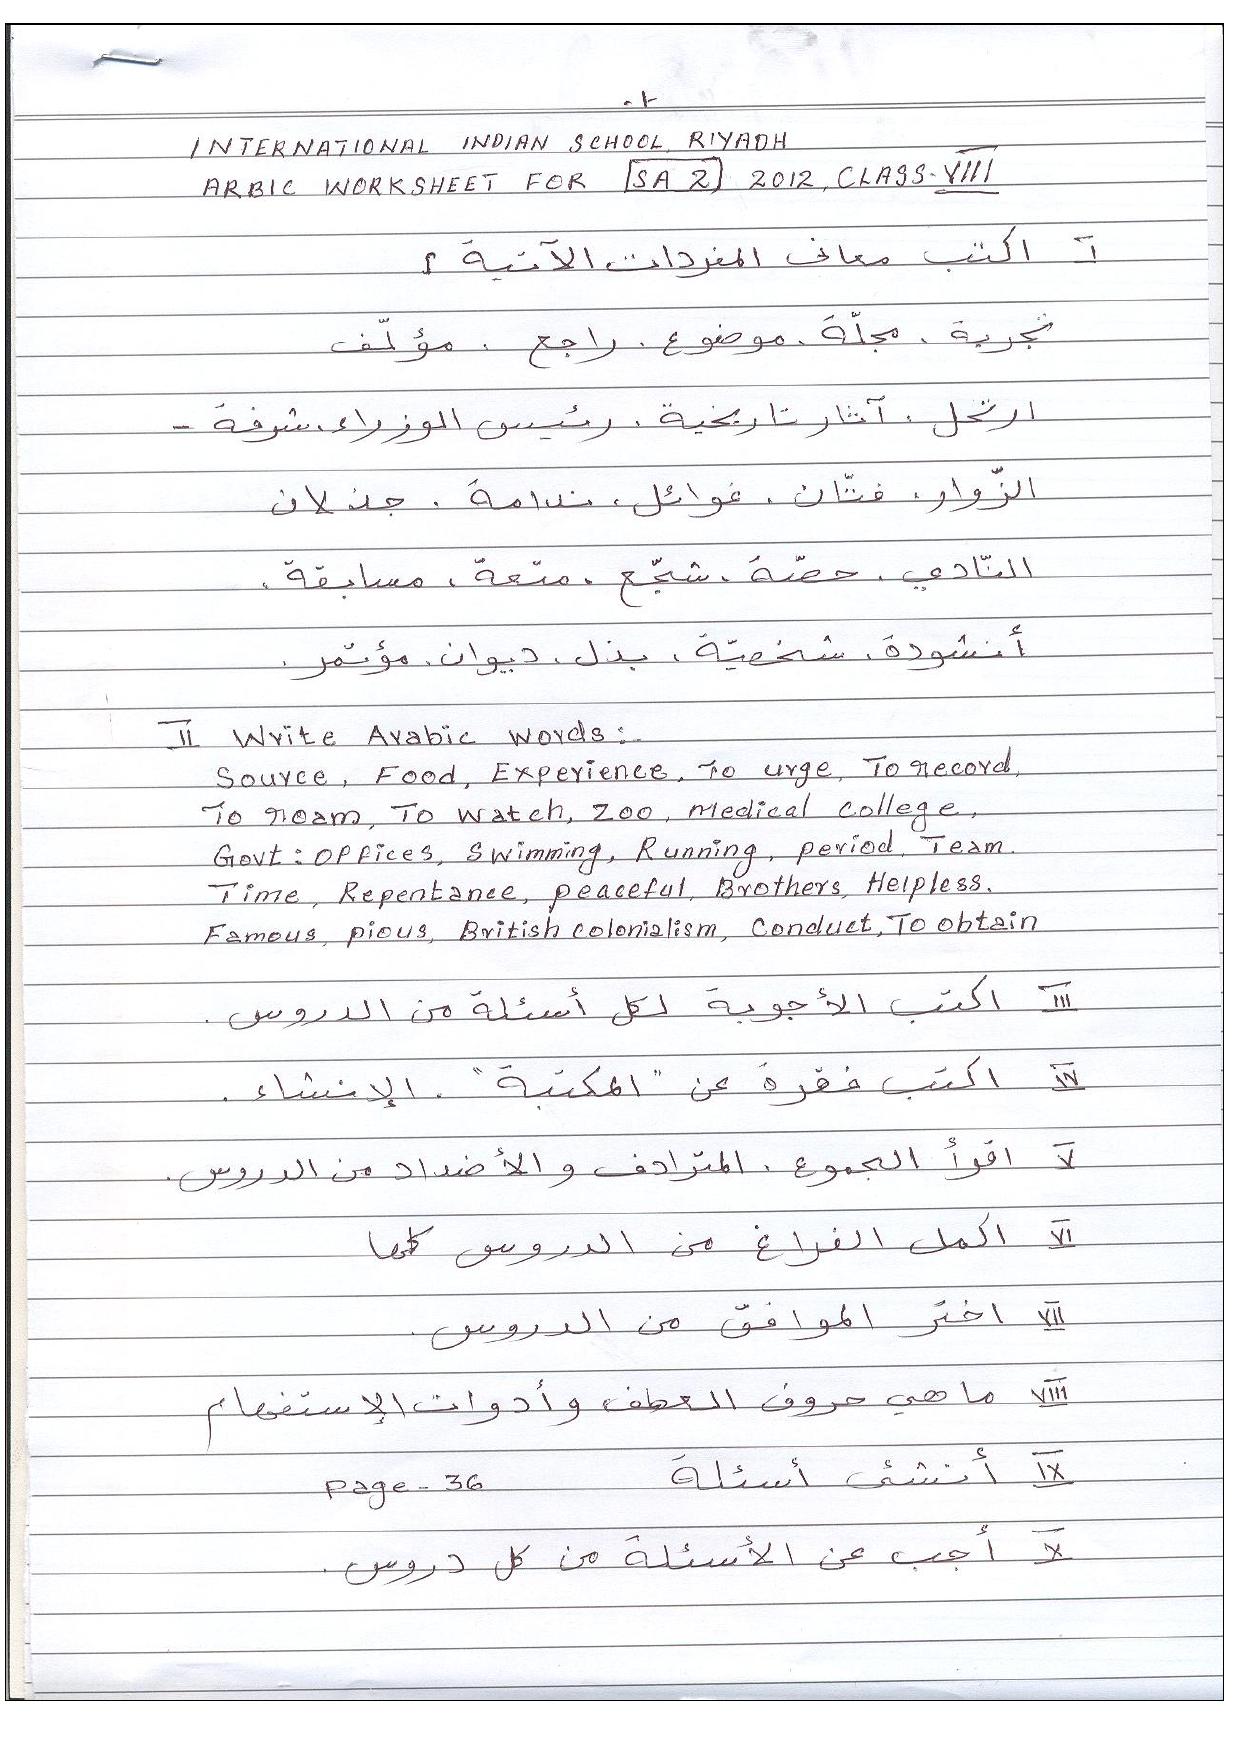 INTERNATIONAL INDIAN SCHOOL, RIYADH
ARBIC WORKSHEET FOR SA 2 2012, CLASS-VIII
I اكتب معاني المفردات الآتية ؟
تجربة . مجلّة . موضوع . راجع . مؤلّف
ارتحل . آثار تاريخية . رئيس الوزراء . شرفة -
الزّوار . فتّان . غوائل . ندامة . جذلان
النّادي . حصّة . شجّع . متعة . مسابقة .
أنشودة . شخصيّة . بذل . ديوان . مؤتمر .
II Write Arabic words:-
Source, Food, Experience, To urge, To record,
To roam, To watch, Zoo, Medical college,
Govt: offices, Swimming, Running, period, Team.
Time, Repentance, peaceful, Brothers, Helpless.
Famous, pious, British colonialism, Conduct, To obtain
III اكتب الأجوبة لكل أسئلة من الدروس .
IV اكتب فقرة عن "المكتبة" . الإنشاء .
V اقرأ الجموع . المترادف والأضداد من الدروس .
VI اكمل الفراغ من الدروس كلها
VII اختر الموافق من الدروس .
VIII ما هي حروف العطف وأدوات الإستفهام
IX أنشئ أسئلة page-36
X أجب عن الأسئلة من كل دروس .